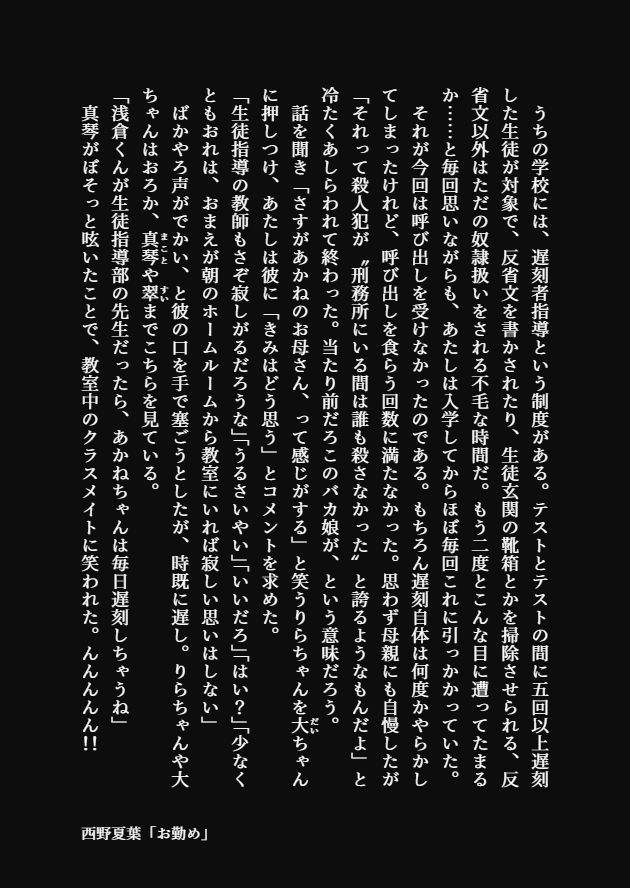 うちの学校には、遅刻者指導という制度がある。テストとテストの間に五回以上遅刻
した生徒が対象で、反省文を書かされたり、生徒玄関の靴箱とかを掃除させられる、反
省文以外はただの奴隷扱いをされる不毛な時間だ。もう二度とこんな目に遭ってたまる
か……と毎回思いながらも、あたしは入学してからほぼ毎回これに引っかかっていた。
　それが今回は呼び出しを受けなかったのである。もちろん遅刻自体は何度かやらかし
てしまったけれど、呼び出しを食らう回数に満たなかった。思わず母親にも自慢したが
「それって殺人犯が〝刑務所にいる間は誰も殺さなかった〟と誇るようなもんだよ」と
冷たくあしらわれて終わった。当たり前だろこのバカ娘が、という意味だろう。
　話を聞き「さすがあかねのお母さん、って感じがする」と笑うりらちゃんを大ちゃん
に押しつけ、あたしは彼に「きみはどう思う」とコメントを求めた。
「生徒指導の教師もさぞ寂しがるだろうな」「うるさいやい」「いいだろ」「はい？」「少なく
ともおれは、おまえが朝のホームルームから教室にいれば寂しい思いはしない」
　ばかやろ声がでかい、と彼の口を手で塞ごうとしたが、時既に遅し。りらちゃんや大
ちゃんはおろか、真琴や翠までこちらを見ている。
「浅倉くんが生徒指導部の先生だったら、あかねちゃんは毎日遅刻しちゃうね」
　真琴がぼそっと呟いたことで、教室中のクラスメイトに笑われた。んんんんん!!
西野夏葉「お勤め」